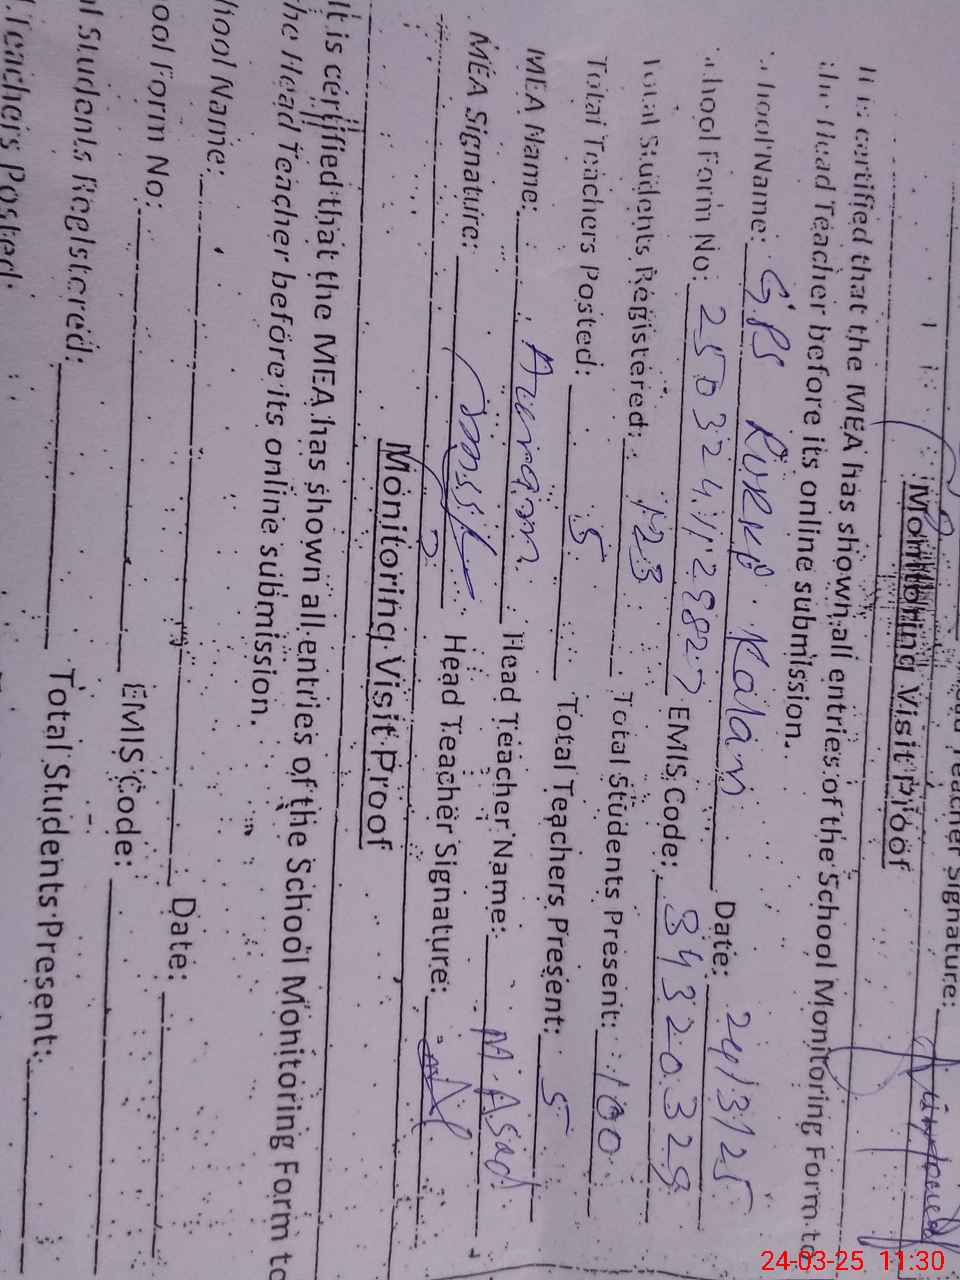 Teacher Signature:
Monitoring Visit Proof
It is certified that the MEA has shown all entries of the School Monitoring Form to
the Head Teacher before its online submission.
School Name: GPS Kalan Date: 24/3/25
School Form No: EMIS Code: 34320329
Total Students Registered: 123 Total Students Present: 100
Total Teachers Posted: 5 Total Teachers Present: 5
MEA Name: Head Teacher Name: M. Asad
MEA Signature: Head Teacher Signature:
Monitoring Visit Proof
It is certified that the MEA has shown all entries of the School Monitoring Form to
he Head Teacher before its online submission.
hool Name: Date:
ool Form No: EMIS Code:
al Students Registered: Total Students Present:
l Teachers Posted:
24-03-25 11:30